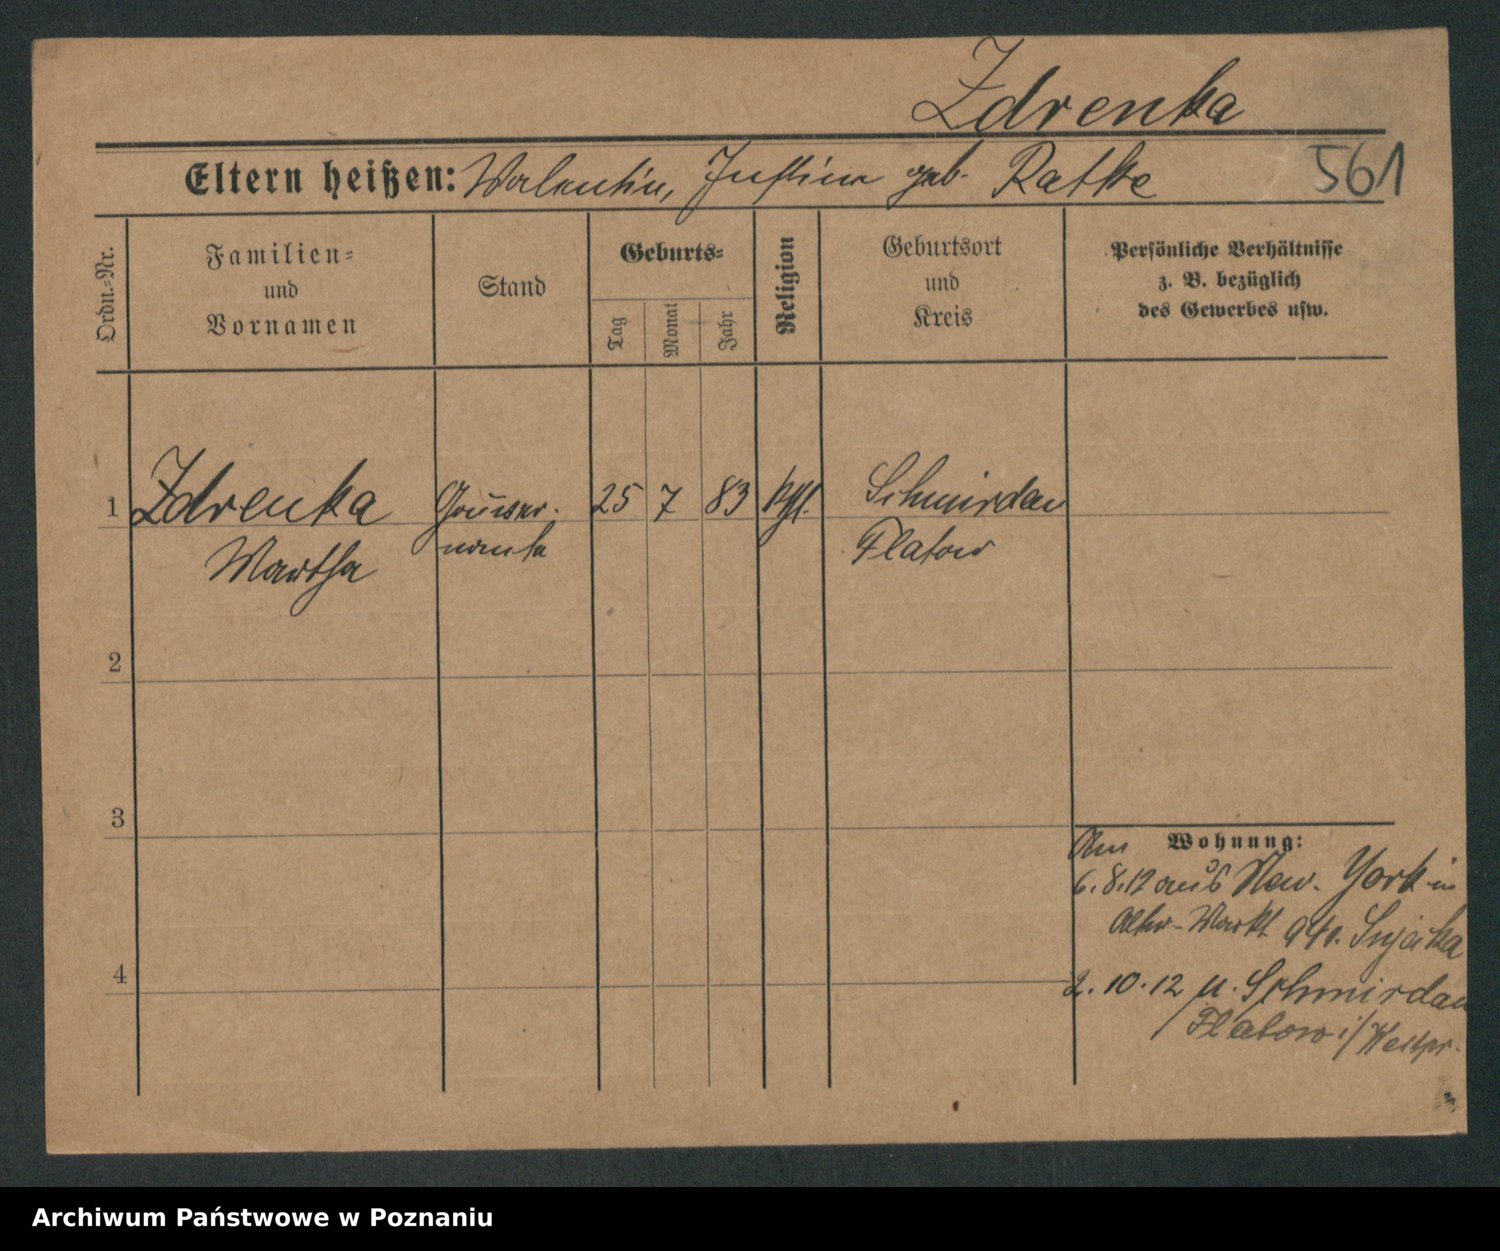 Zdrenka
Eltern heißen: Valentin, Justine geb. Ratke
561
Ordn.=Nr.
Familien=
und
Vornamen
Stand
Geburts=
Tag
Monat
Jahr
Religion
Geburtsort
und
Kreis
Persönliche Verhältnisse
z. B. bezüglich
des Gewerbes usw.
1 Zdrenka Gouver- 25 7 83 kth. Schmirdau
Martha nante Flatow
2
3
Wohnung:
Am
6.8.12 aus New-York in
Alter-Markt
4
2.10.12 n. Schmirdau
Flatow i/Westpr.
Archiwum Państwowe w Poznaniu